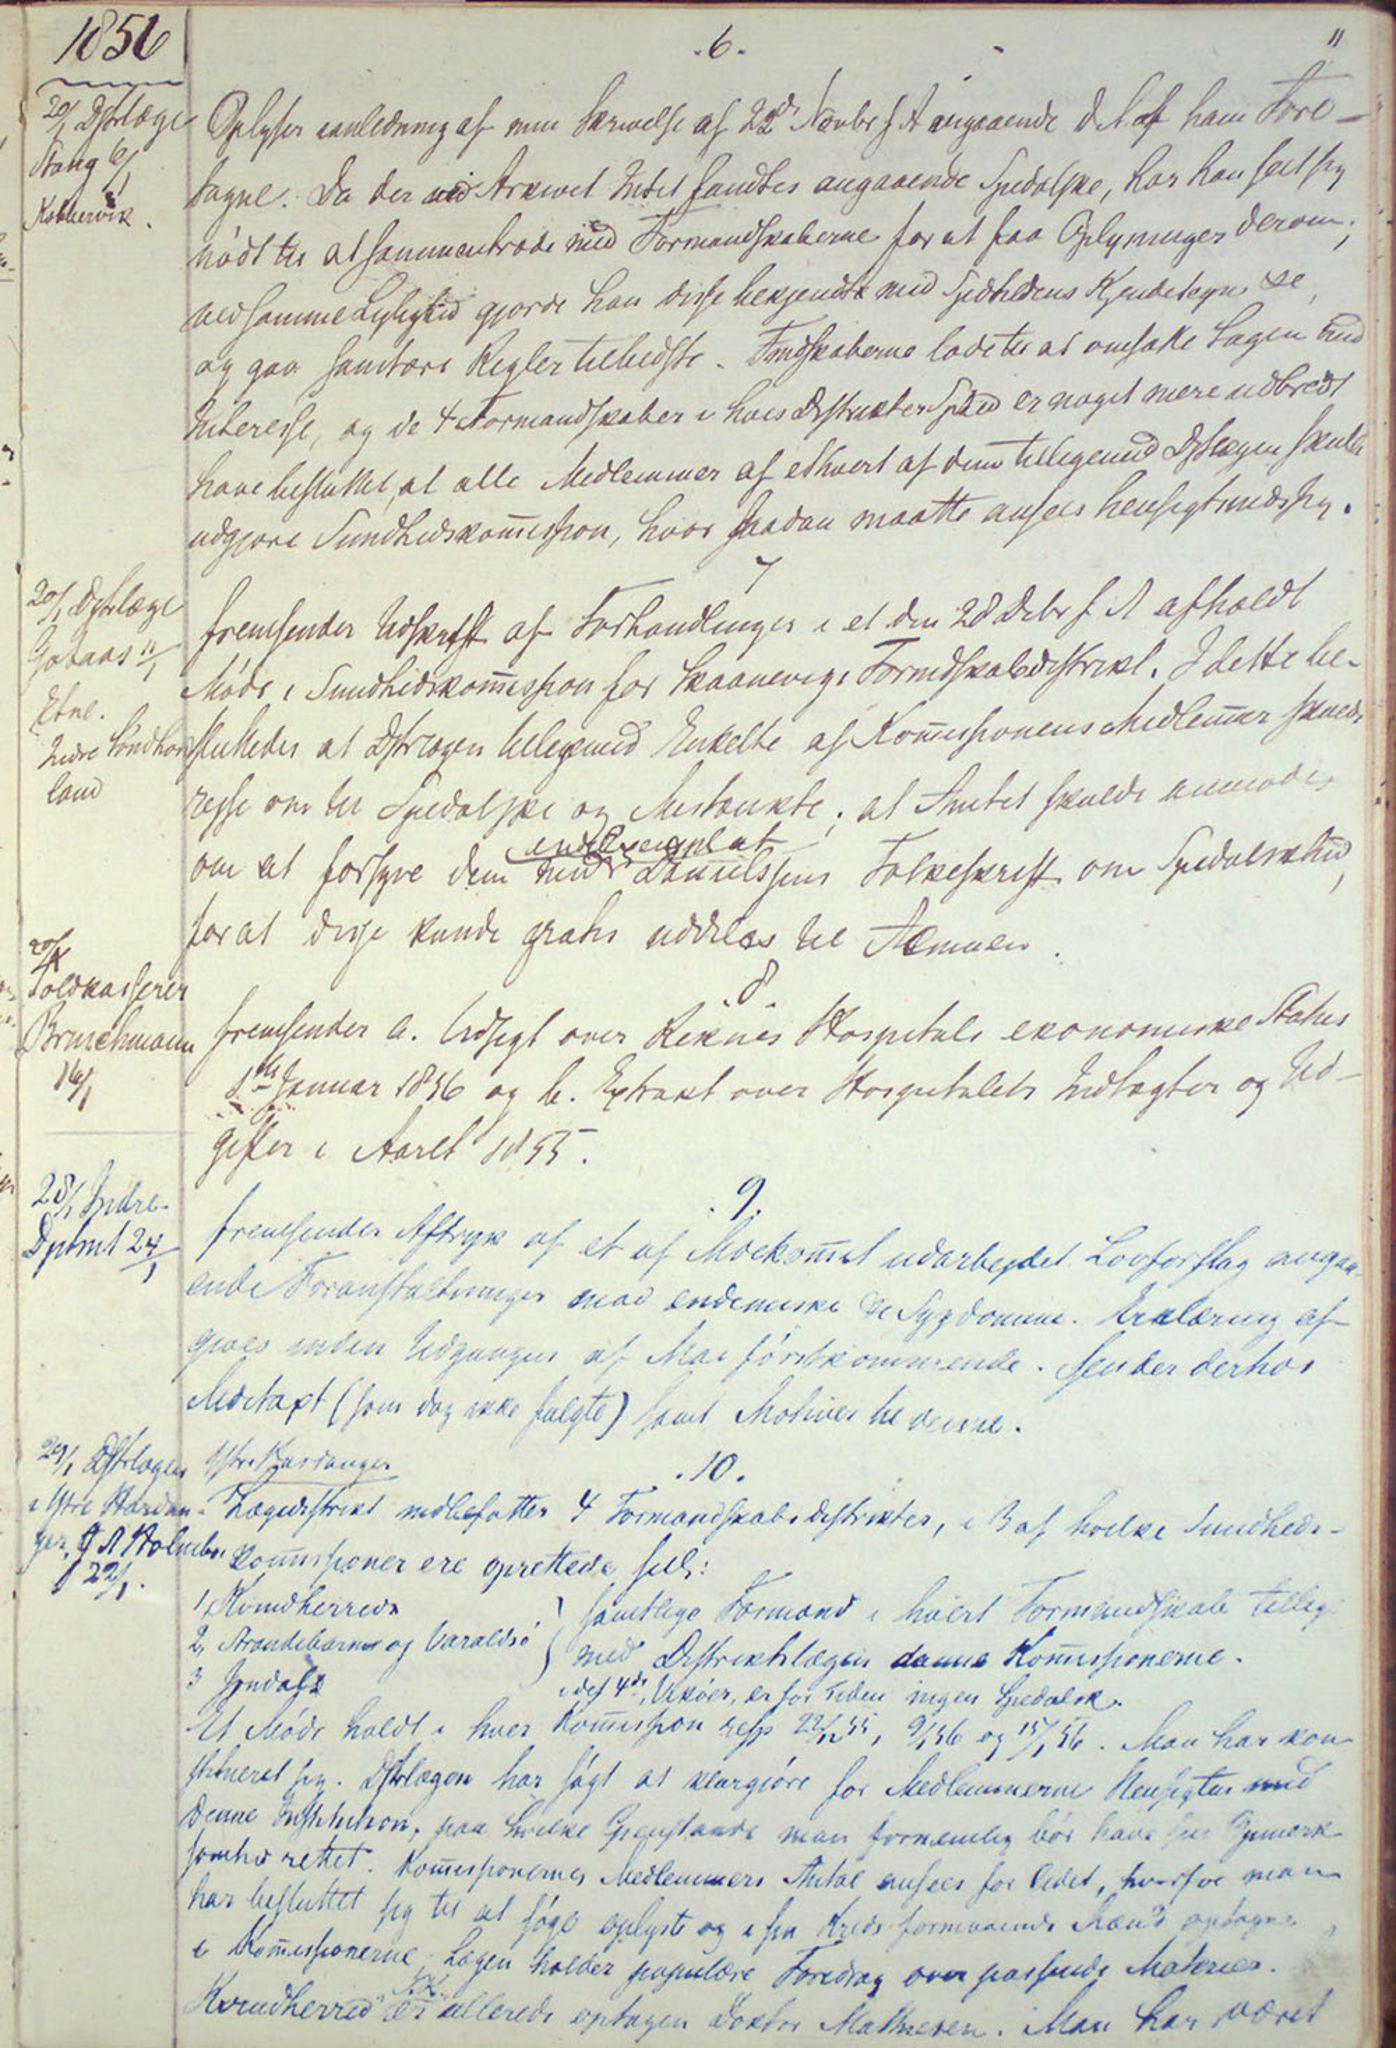 1856
.6.
11
20/1 Dstrlæge
Stang 6/1
Kobbervik.
Oplyser i anledning af min Skrivelse af 22de Novbr f A angaaende d Af ham Fore-
tagne. Da der ved Arkivet Intet fandtes angaaende Spedalske, har han seet sig
nödt til at sammentræde med Formandskaberne for at faa Oplysninger derom;
ved samme Leilighed gjorde han disse bekjendte med Sygdens Kjendetegn &c,
og gav sanitære Regler tilbedste. Fmdskaberne lode til at omfatte Sagen med
Interesse, og de 4 Formandskaber i hvis Distrikter Spdsd er noget mere udbredt
have besluttet, at alle Medlemmer af ethvert af dem tilligemed Dstlægen skulle
udgjøre Sundhedskom̄ission, hvor saadan maatte ansees hensigtsmæssig.
7
20/1 Dstrlæge
Gabaas 11/1
Etne.
Indre Söndhord
land
fremsender Udskrift af Forhandlinger i et den 28 Debr f A afholdt
Möde i Sundhedskom̄ission for Skaanevigs Formdskabsdistrikt. I dette be-
sluttedes at Dstrlægen tilligemed Enkelte af Kom̄issionens Medlem̄er skulde
rejse om til Spedalske og Mistænkte; at Amtet skulde anmodes
endl exemplar
om at forsyne dem med Danielssens Folkeskrift om Spedalskhed,
for at disse kunde gratis uddeles til Almuen.
.8.
20/1
Toldkasserer
Brinchmann
16/1
fremsender a. Udsigt over Reknes Hospitals ekonomiske Status
1ste Januar 1856 og b. Extrakt over Hospitalets Indtægter og Ud-
gifter i Aaret 1855.
.9.
28/1 Indre-
Dptmt 24/1
fremsender Aftryk af et af Medkom̄ut udarbejdet Lovforslag angaa-
ende Foranstaltninger mod endemiske &c Sygdomme. Erklæring af-
gives inden Udgangen af Mai förstkommende. Sender derhos
Medtaxt (som dog ikke fulgte) samt Motiver til denne.
.10.
29/1 Dstrlægen
i Ytre Hardan-
ger, J A Holmboe
22/1.
Ytre Hardanger
Lægedistrikt indbefatter 4 Formandskabsdistrikter, i 3 af hvilke Sundheds-
kom̄issioner ere oprettede, sell:
1, Kvindherreds
2, Strandebarms og Varaldsö
3 Jondals
samtlige Formænd i hvert Formandskab tillige
med Distriktslægen danne Kom̄issionerne.
i det 4de, Vikör, er for Tiden ingen Spedalsk.
Et Möde holdt i hver Kom̄ission resp 22/12 55, 9/1 56 og 15/1 56. Man har kon-
stitueret sig. Dstrlægen har sögt at klargjöre for Medlemmerne Hensigten med
denne Institution, paa hvilke Gjenstande man fornemlig bör have sin Opmærk-
somhed rettet. Kom̄issionernes Medlemmers Antal ansees for lidet, hvorfor man
har besluttet sig til at söge oplyste og i sin Kreds formaaende Mænd optagne
i Kom̄issionerne. Lægen holder populære Foredrag over passende Materier.
I Kvindherreds S.K. er allerede optagen Doktor Mathiesen. Man har været